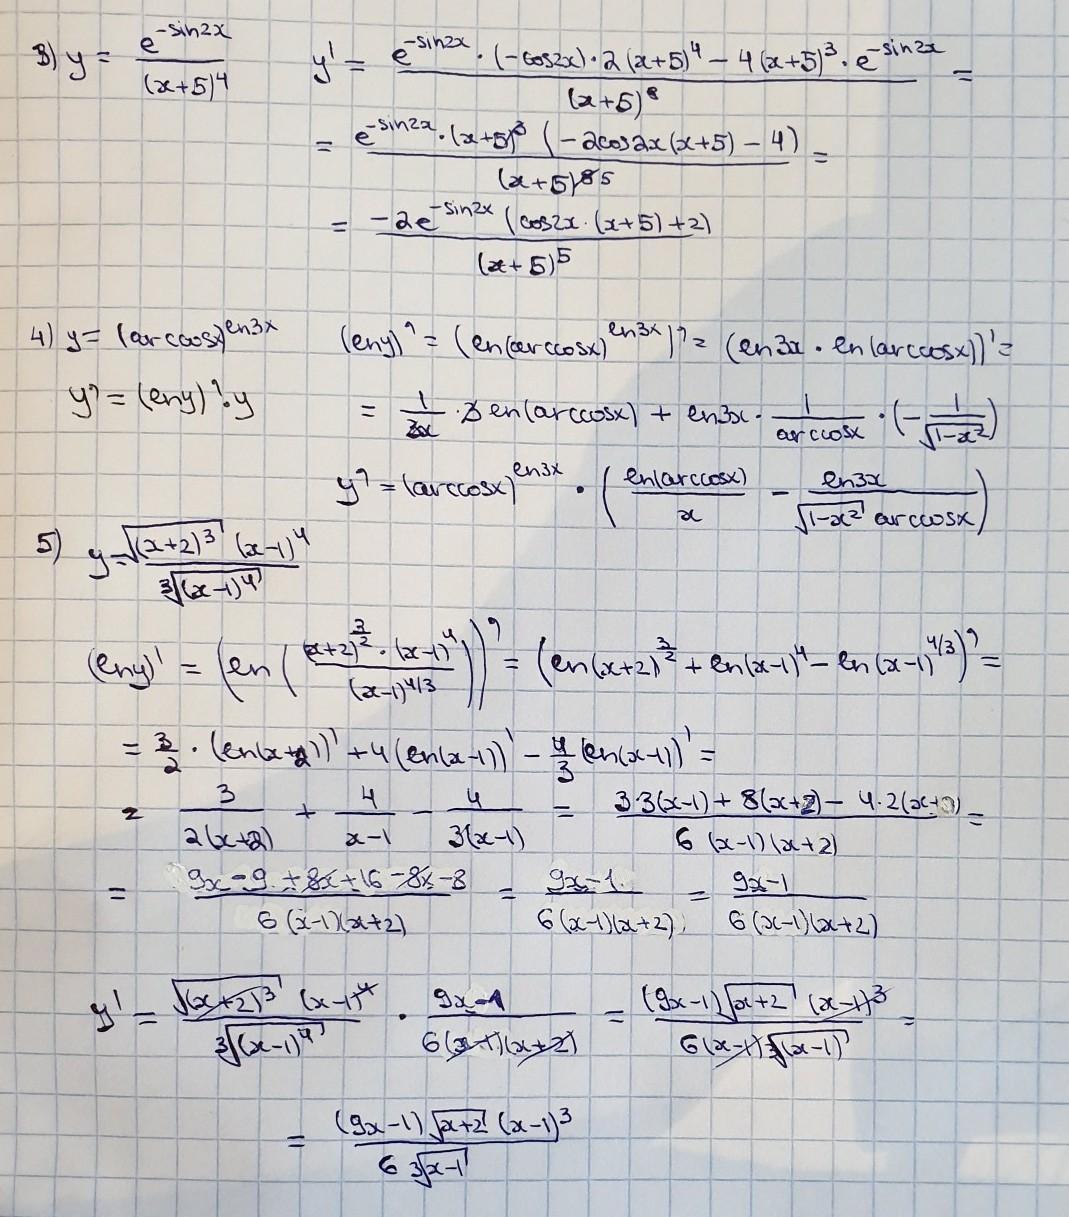 3) y = e^{-sin2x} / (x+5)^4    y' = (e^{-sin2x} · (-cos2x) · 2(x+5)^4 - 4(x+5)^3 · e^{-sin2x}) / (x+5)^8 =
= (e^{-sin2x} · (x+5)^3 (-2cos2x(x+5) - 4)) / (x+5)^{8 5} =
= (-2e^{-sin2x} (cos2x · (x+5) + 2)) / (x+5)^5
4) y = (arccosx)^{ln3x}    (lny)' = (ln(arccosx)^{ln3x})' = (ln3x · ln(arccosx))' =
y' = (lny)' · y    = 1/(3x) · 3 ln(arccosx) + ln3x · 1/arccosx · (-1/√(1-x²))
y' = (arccosx)^{ln3x} · (ln(arccosx)/x - ln3x/(√(1-x²) arccosx))
5) y = √((x+2)^3) (x-1)^4 / ∛((x-1)^4)
(lny)' = (ln((x+2)^{3/2} · (x-1)^4 / (x-1)^{4/3}))' = (ln(x+2)^{3/2} + ln(x-1)^4 - ln(x-1)^{4/3})' =
= 3/2 · (ln(x+2))' + 4(ln(x-1))' - 4/3 (ln(x-1))' =
= 3/(2(x+2)) + 4/(x-1) - 4/(3(x-1)) = (3·3(x-1) + 8(x+2) - 4·2(x+ )) / (6(x-1)(x+2)) =
= (9x-9+8x+16-8x-8) / (6(x-1)(x+2)) = (9x-1) / (6(x-1)(x+2)) = (9x-1) / (6(x-1)(x+2))
y' = √((x+2)^3) (x-1)^4 / ∛((x-1)^4) · (9x-1) / (6(x-1)(x+2)) = (9x-1)√(x+2) (x-1)^3 / (6(x-1)∛(x-1)) =
= (9x-1)√(x+2) (x-1)^3 / (6∛(x-1))